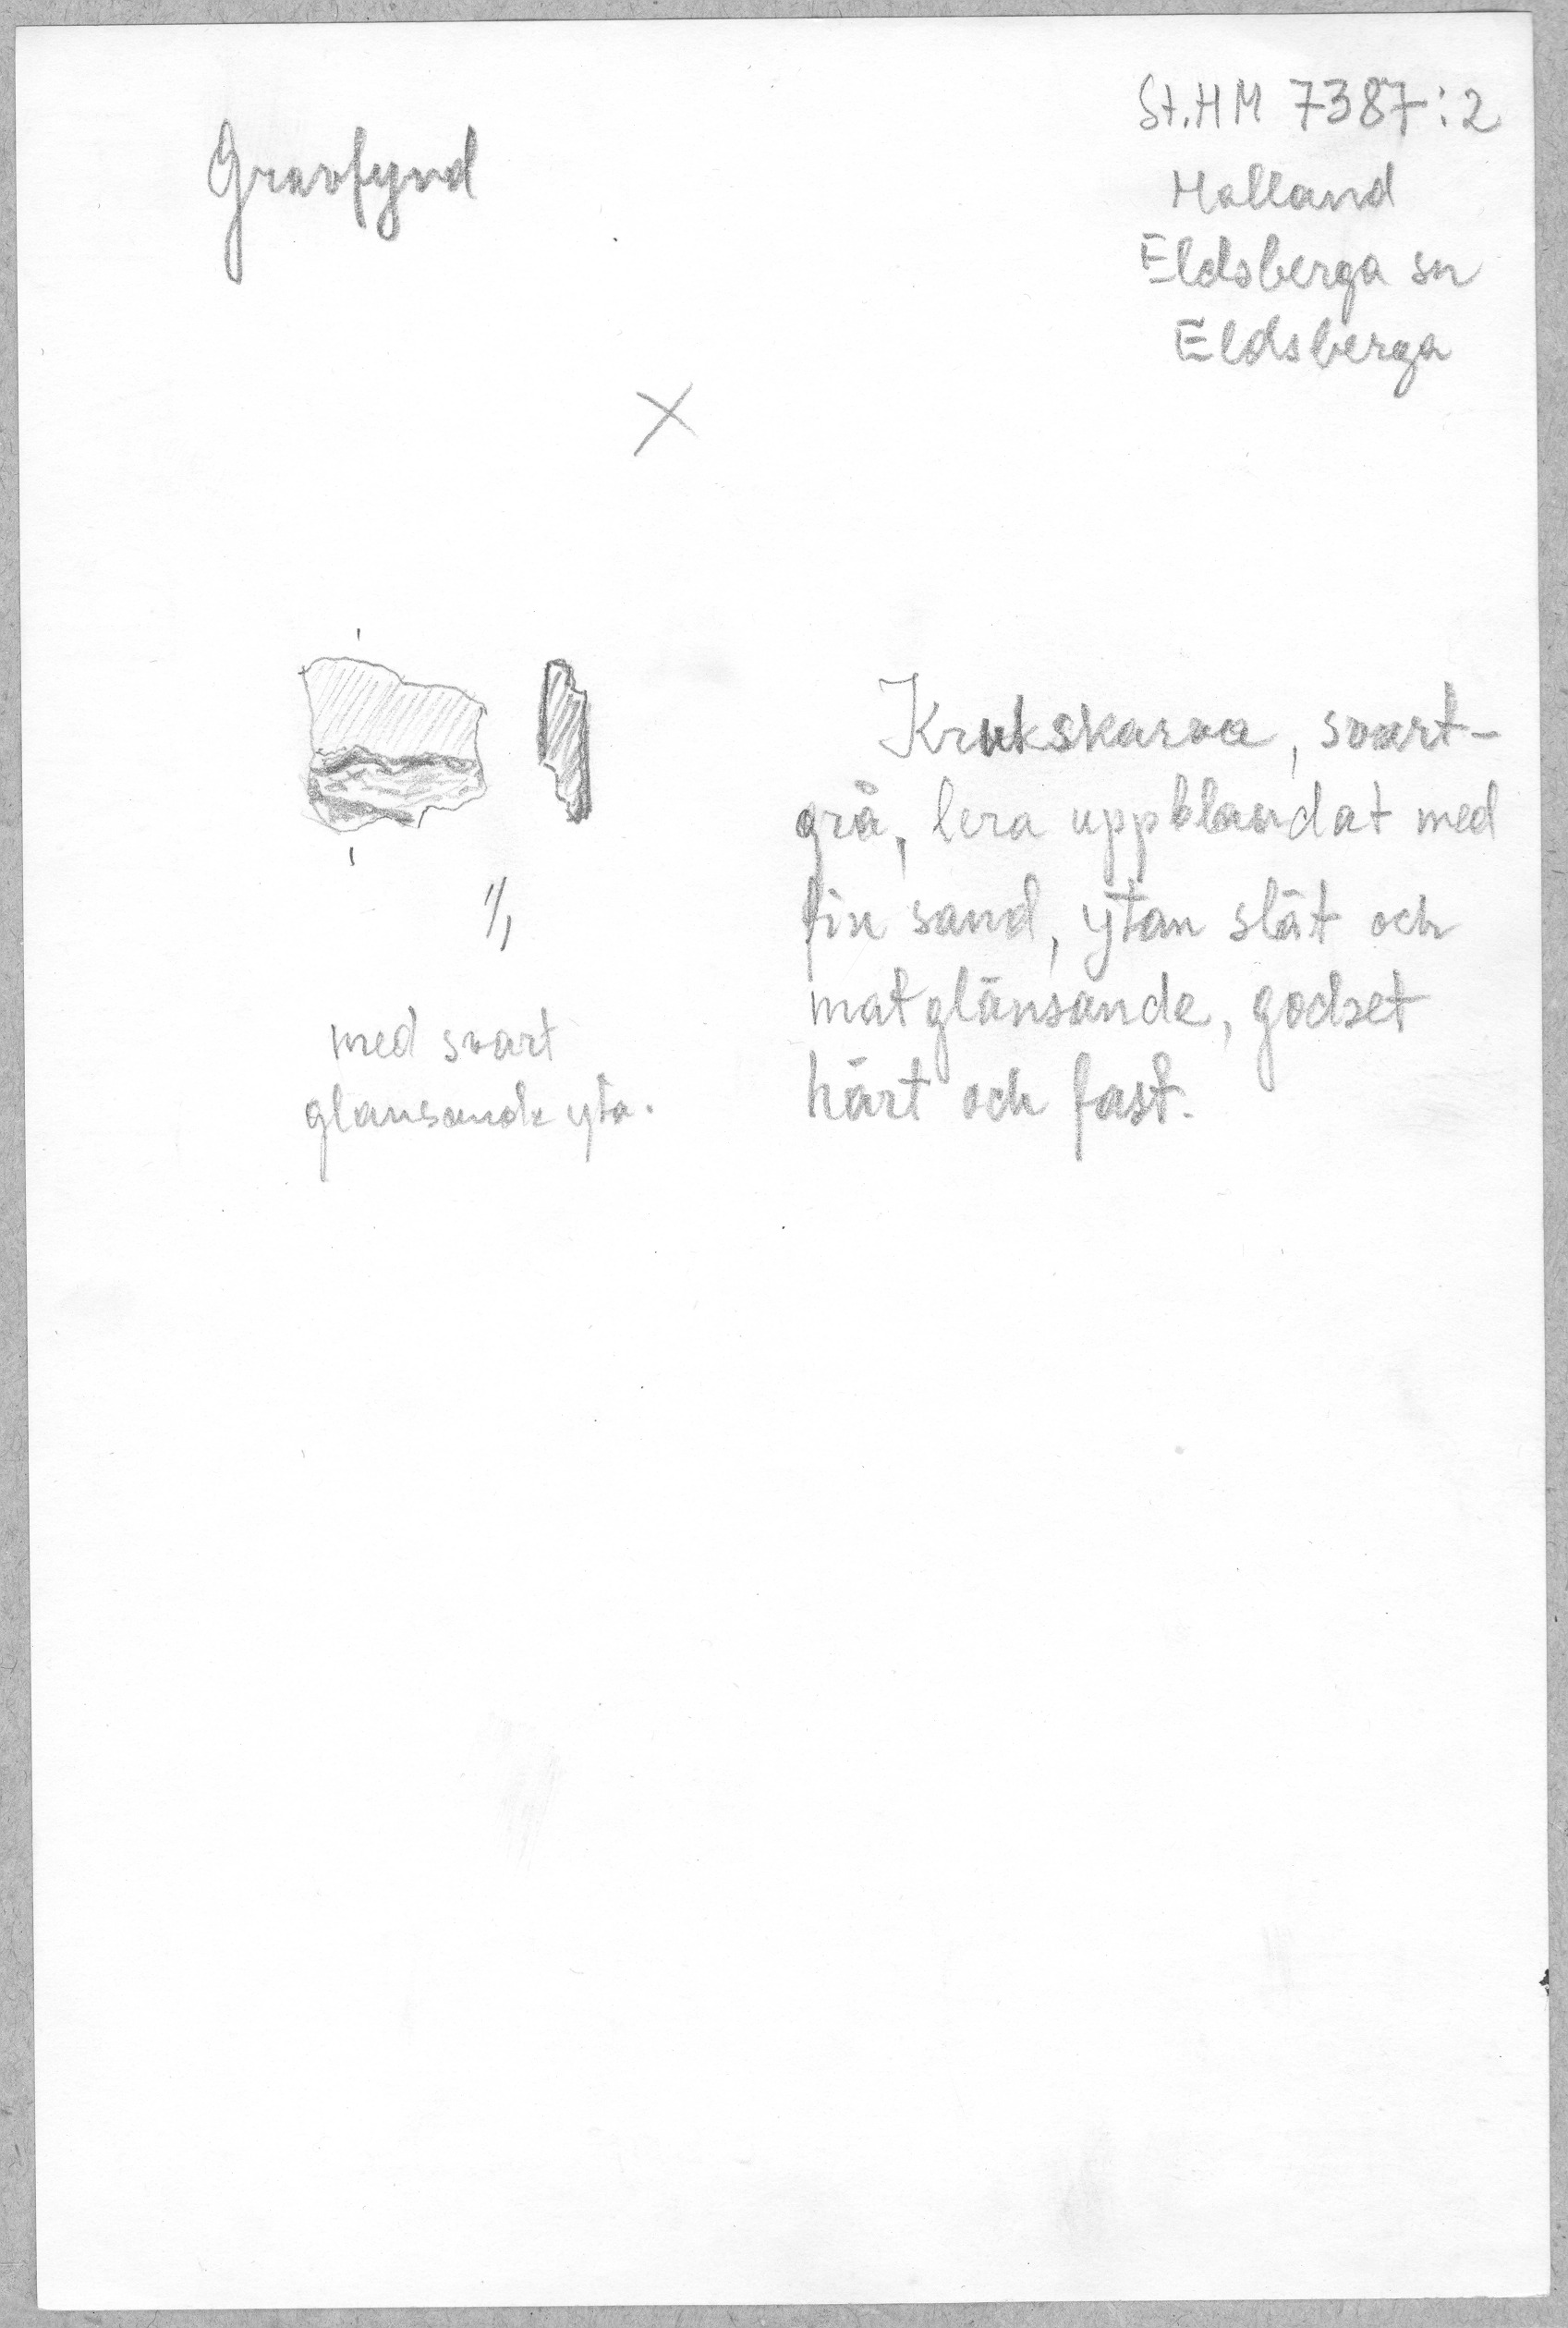 Gravfynd
St.HM 7387:2
Halland
Eldsberga sn
Eldsberga
X
1/1
med svart
glansande yta.
Krukskärva, svart-
grå, lera uppblandat med
fin sand, ytan slät och
matglänsande, godset
hårt och fast.